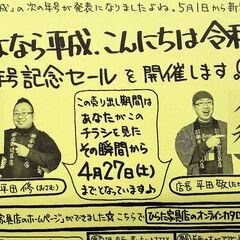 の次の年号が発表になりましたよね。5月1日から新
なら平成、こんにちは令和
号記念セールを開催します♪
この売り出し期間は
あなたがこの
チラシを見た
その瞬間から
4月27日(土)
までとなっています♪
平田 修
店長 平田 敬
家具店のホームページができました☆こちらで ひらた家具店のオンラインカタロ